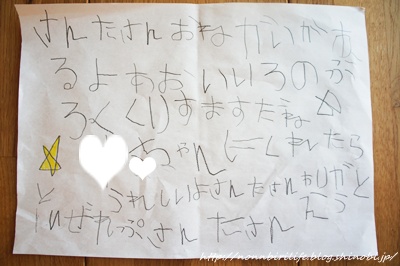 さんたさんおねがいがあ
るよあおいいろのぶ
ろっくくりすますだね
ちゃんにくれたら
うれしいよさんたさんありがと
う
ぷさんたさん
http://nonnbirilife.blog.shinobi.jp/